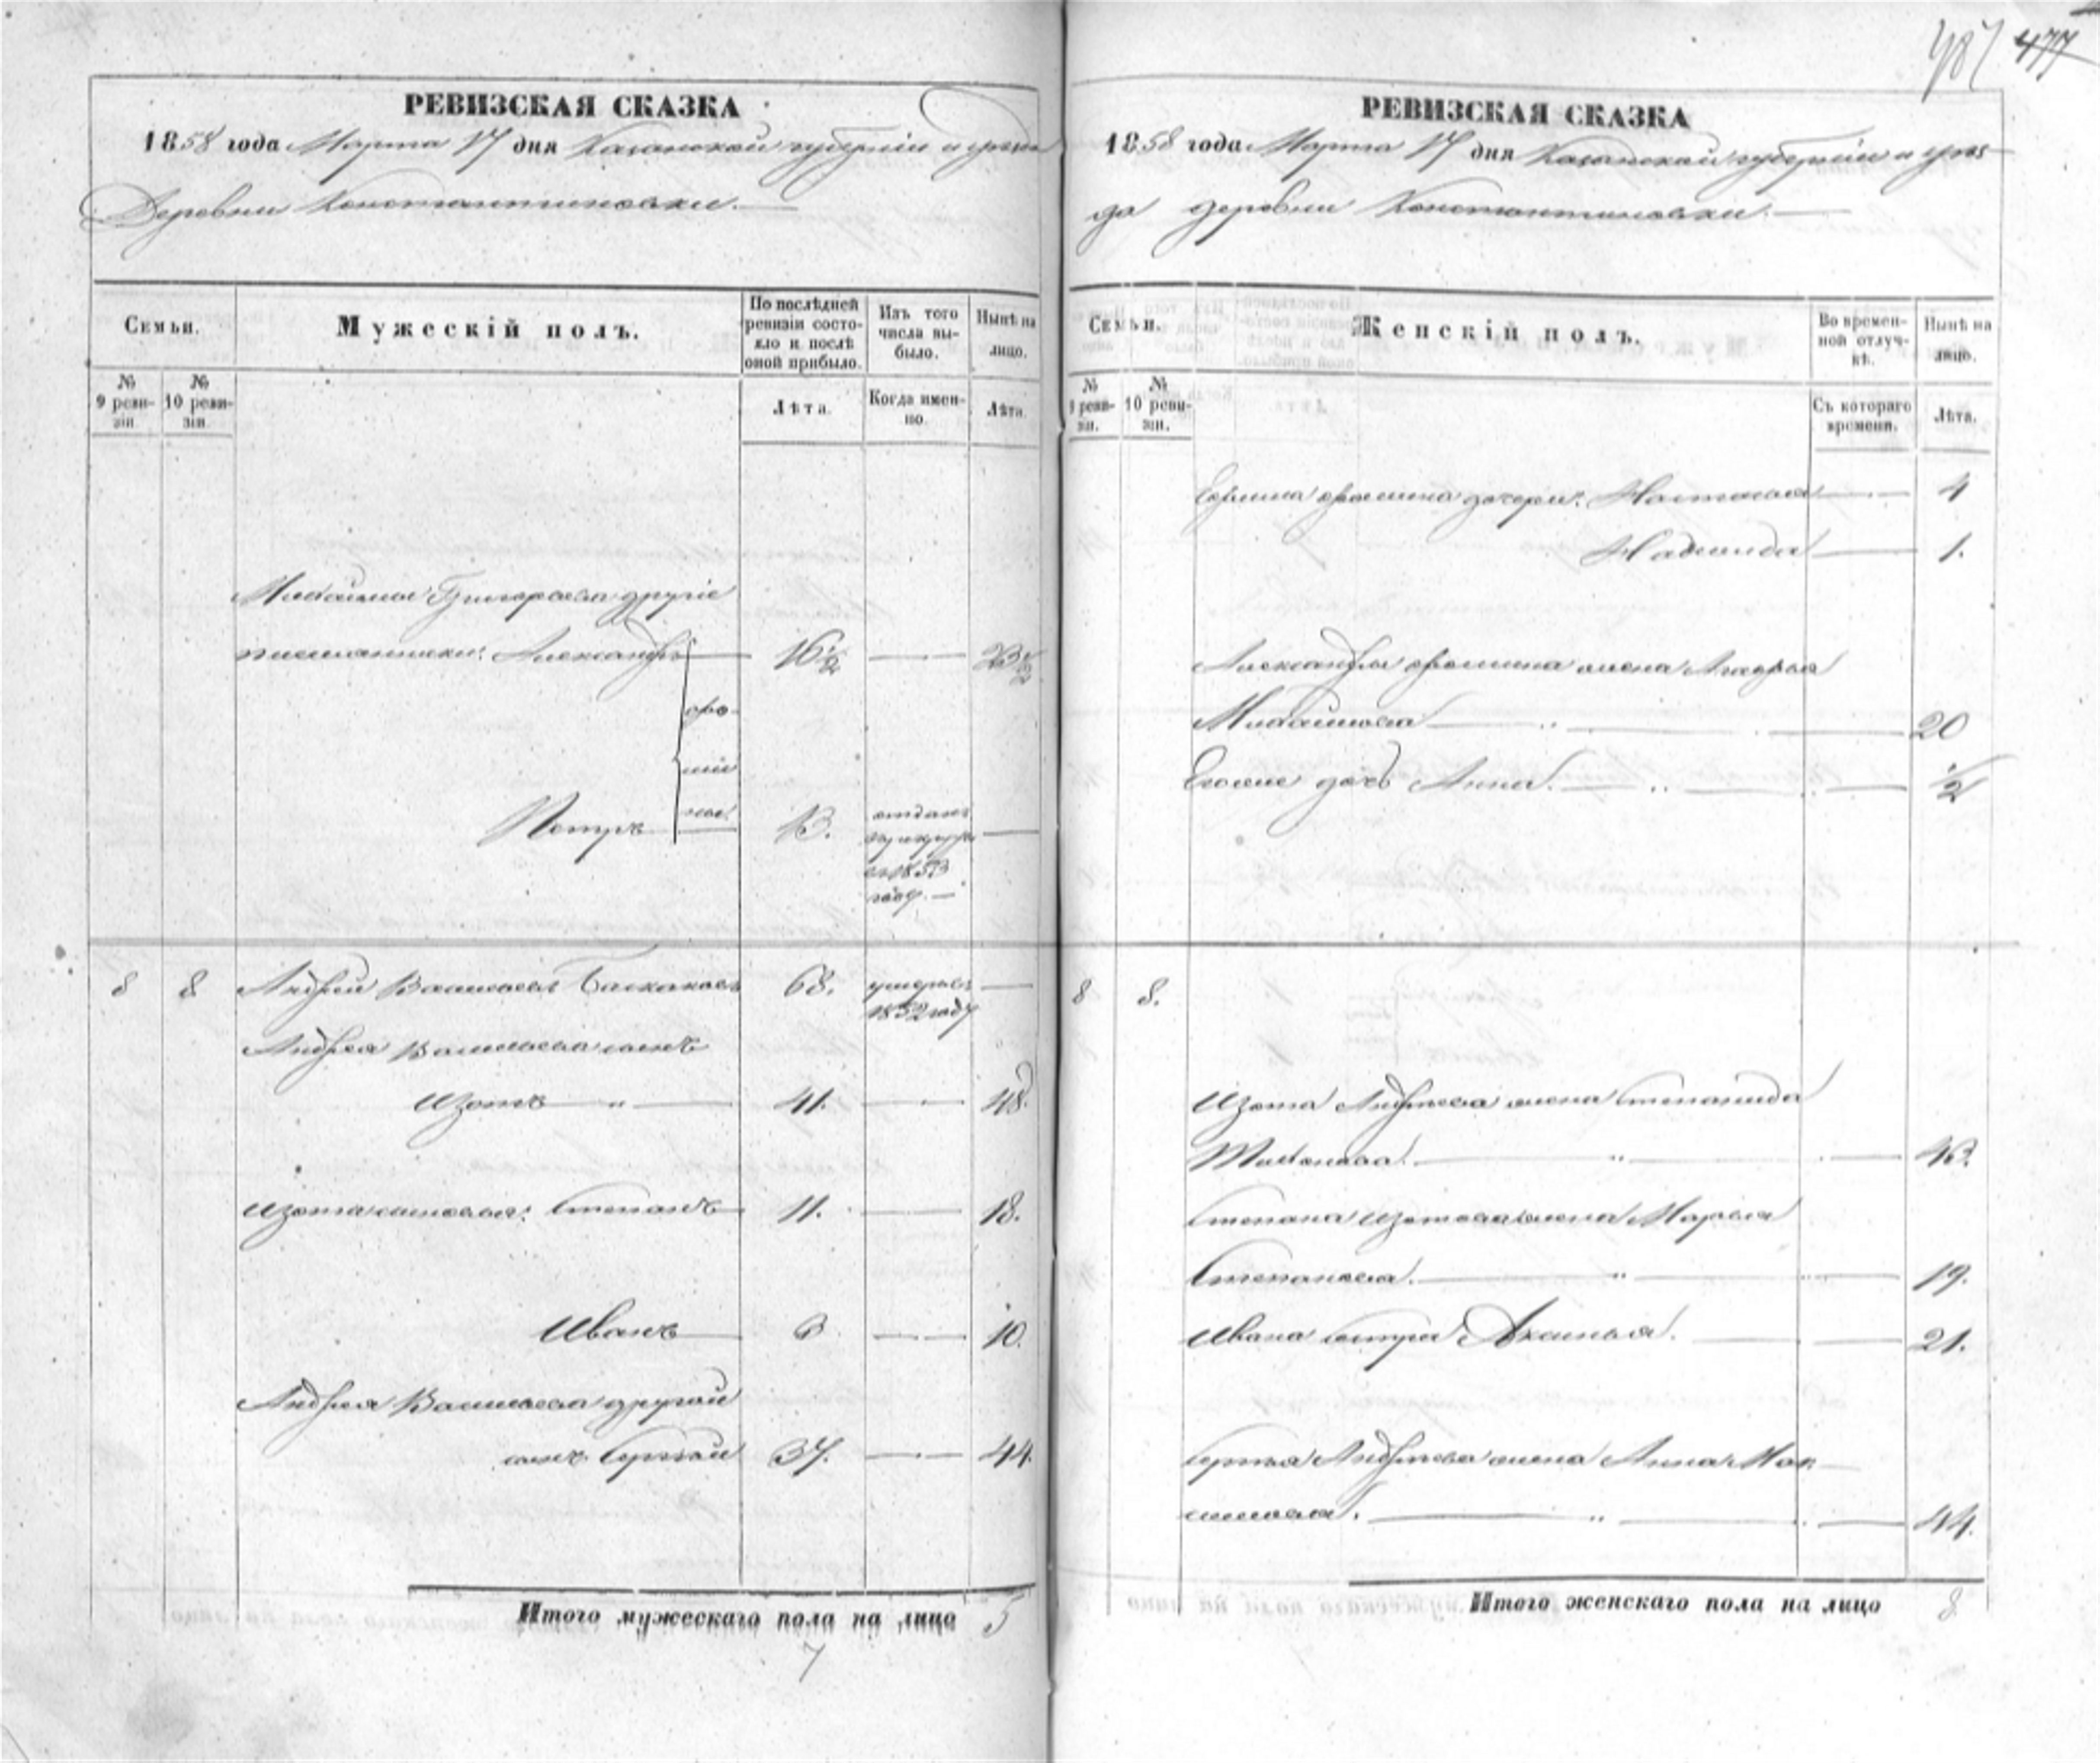 487 477
РЕВИЗСКАЯ СКАЗКА
1858 года Марта 17 дня Казанской губерніи и уезда
Деревни Константиновки.
Семьи.
Мужескій полъ.
По послѣдней ревизіи состояло и послѣ оной прибыло.
Изъ того числа выбыло.
Нынѣ на лицо.
№ 9 ревизіи
№ 10 ревизіи
Лѣта.
Когда именно.
Лѣта.
Михайлы Григорьева другіе
племянники: Александръ 16 1/2 23 1/2
Петръ 13. отданъ
въ рекруты
въ 1853
году.
8 8 Андрей Васильевъ Баскаковъ 68. умеръ въ
1852 году
Андрея Васильева сынъ
Изотъ " 41. 48.
Изота сыновья: Степанъ 11. 18.
Иванъ 3 10.
Андрея Васильева другой
сынъ Сергѣй 37. 44.
Итого мужескаго пола на лицо 5
7
РЕВИЗСКАЯ СКАЗКА
1858 года Марта 17 дня Казанской губерніи и уез-
да деревни Константиновки.
Семьи.
Женскій полъ.
Во временной отлучкѣ.
Нынѣ на лицо.
№ 9 ревизіи.
№ 10 ревизіи.
Съ котораго времени.
Лѣта.
дочери: Настасья 4
Надежда 1.
Александры жена
Михайлова 20
дочь Анна. 1/2
8 8.
Изота Андреева жена Степанида
43.
Степана Изотова жена Марья
Степанова. " 19.
Ивана сестра Аксинья. 21.
Сергѣя Андреева жена Анна Мак-
симова. " 44.
Итого женскаго пола на лицо 8